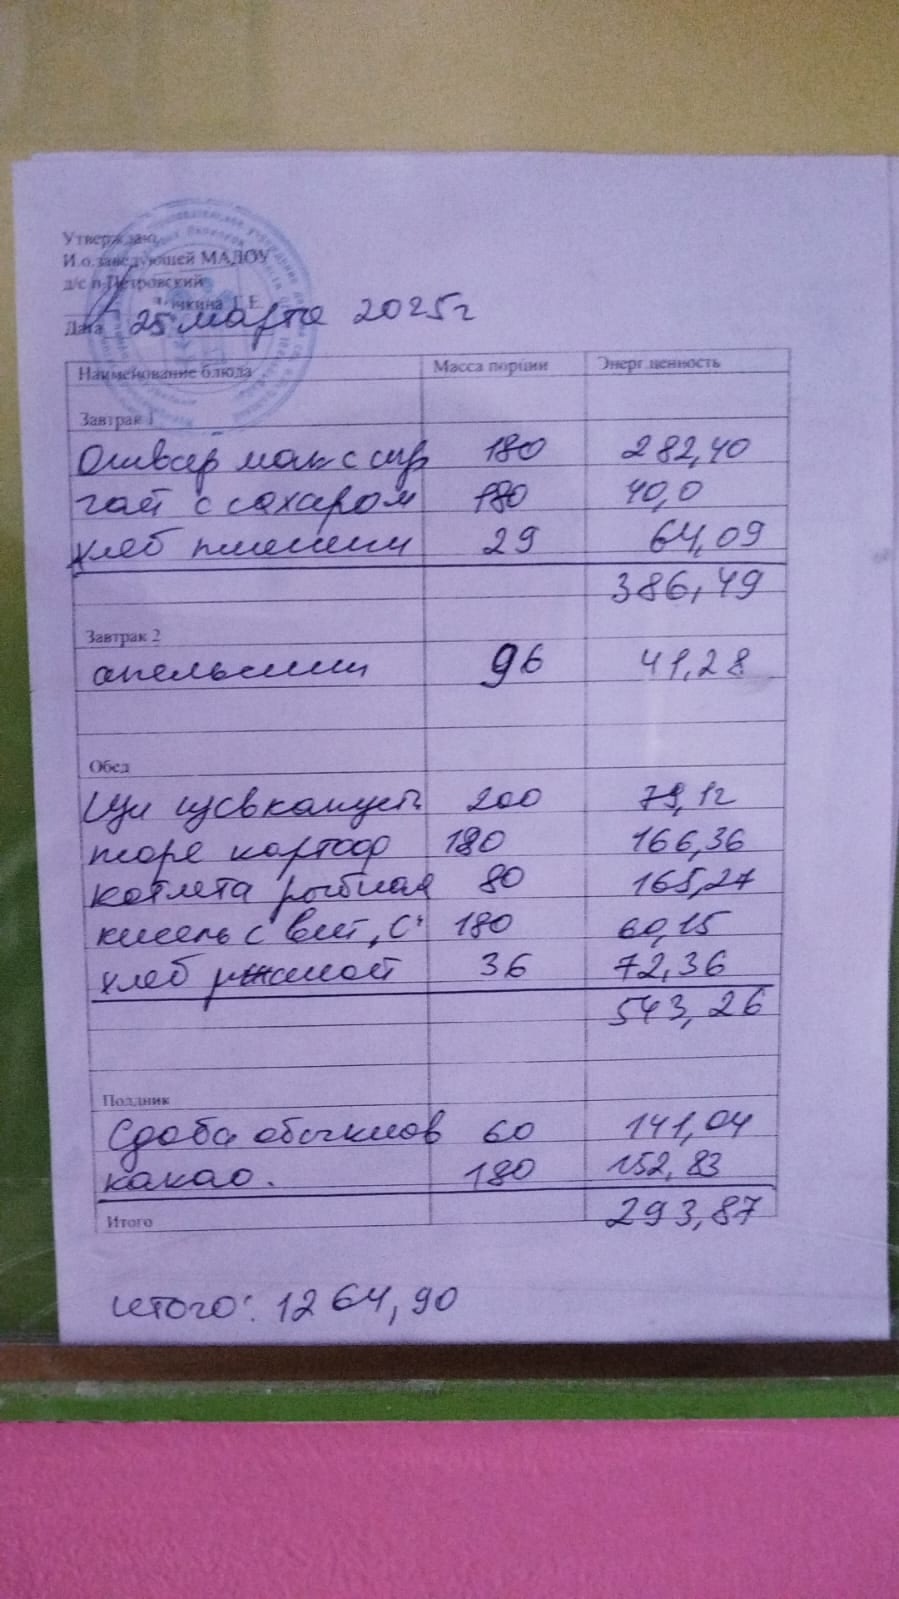 Утверждаю
И.о.заведующей МАДОУ
д/с п Петровский
Г.Е.
Дата 25 марта 2025г
Наименование блюда Масса порции Энерг ценность
Завтрак 1
Отвар мак с сыр 180 282,40
чай с сахаром 180 40,0
хлеб пшеничн 29 64,09
386,49
Завтрак 2
апельсин 96 41,28
Обед
Щи из св капуст 200 79,12
пюре картоф 180 166,36
котлета рыбная 80 165,27
кисель с вит „С" 180 60,15
хлеб ржаной 36 72,36
543,26
Полдник
Сдоба обыкнов 60 141,04
какао. 180 152,83
Итого 293,87
итого: 1264,90